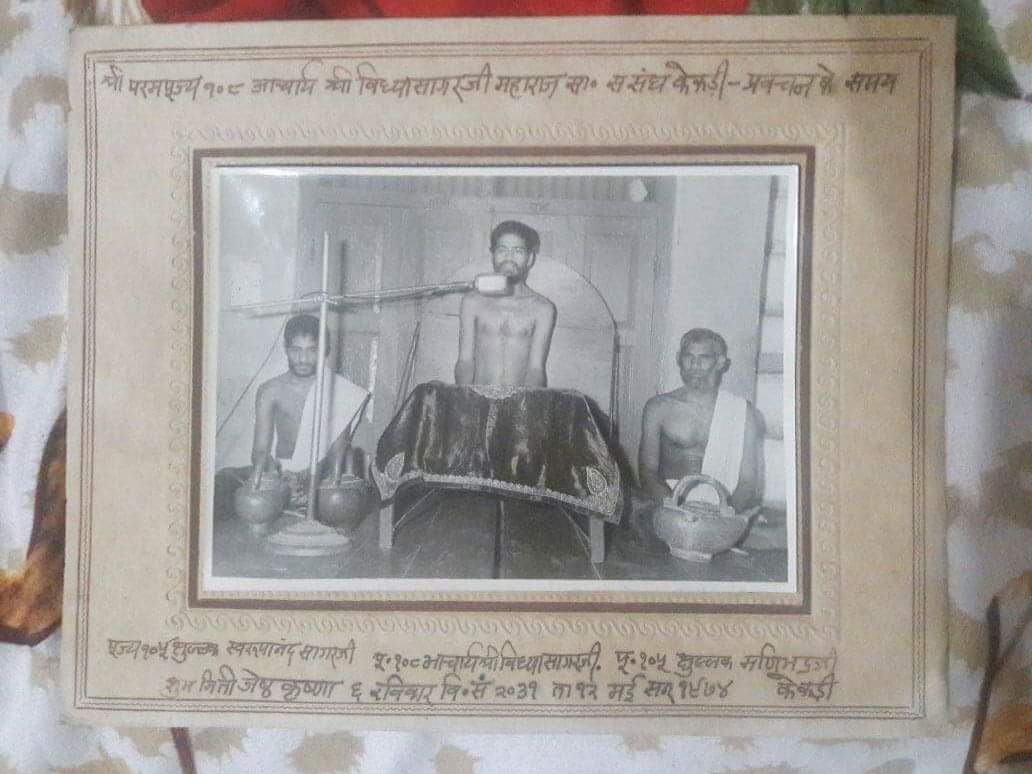 श्री परमपूज्य १०८ आचार्य श्री विध्यासागरजी महाराज सा॰ स संघ केकड़ी - प्रवचन के समय
पूज्य १०५ क्षुल्लक स्वरूपानंद सागरजी पू॰ १०८ आचार्य श्री विध्यासागरजी. पू॰ १०५ क्षुल्लक मणिभद्रजी
शुभ मिती जेष्ठ कृष्णा ६ रविवार वि॰ सं २०३१ ता १२ मई सन् १९७४ केकड़ी